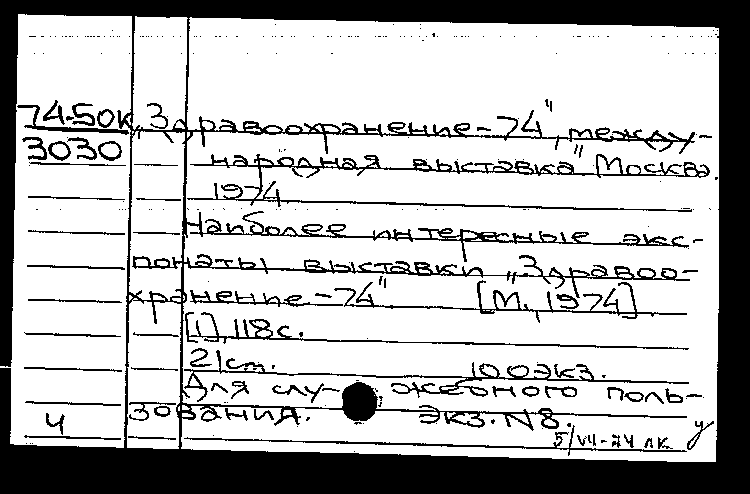 74-50к „Здравоохранение-74", между-
3030 народная выставка" Москва.
1974
Наиболее интересные экс-
понаты выставки „Здравоо-
хранение-74". [М., 1974]
[1], 118с.
21см. 100экз.
Для слу- жебного поль-
ч зования. экз. N8.
5/VII-74 лк у